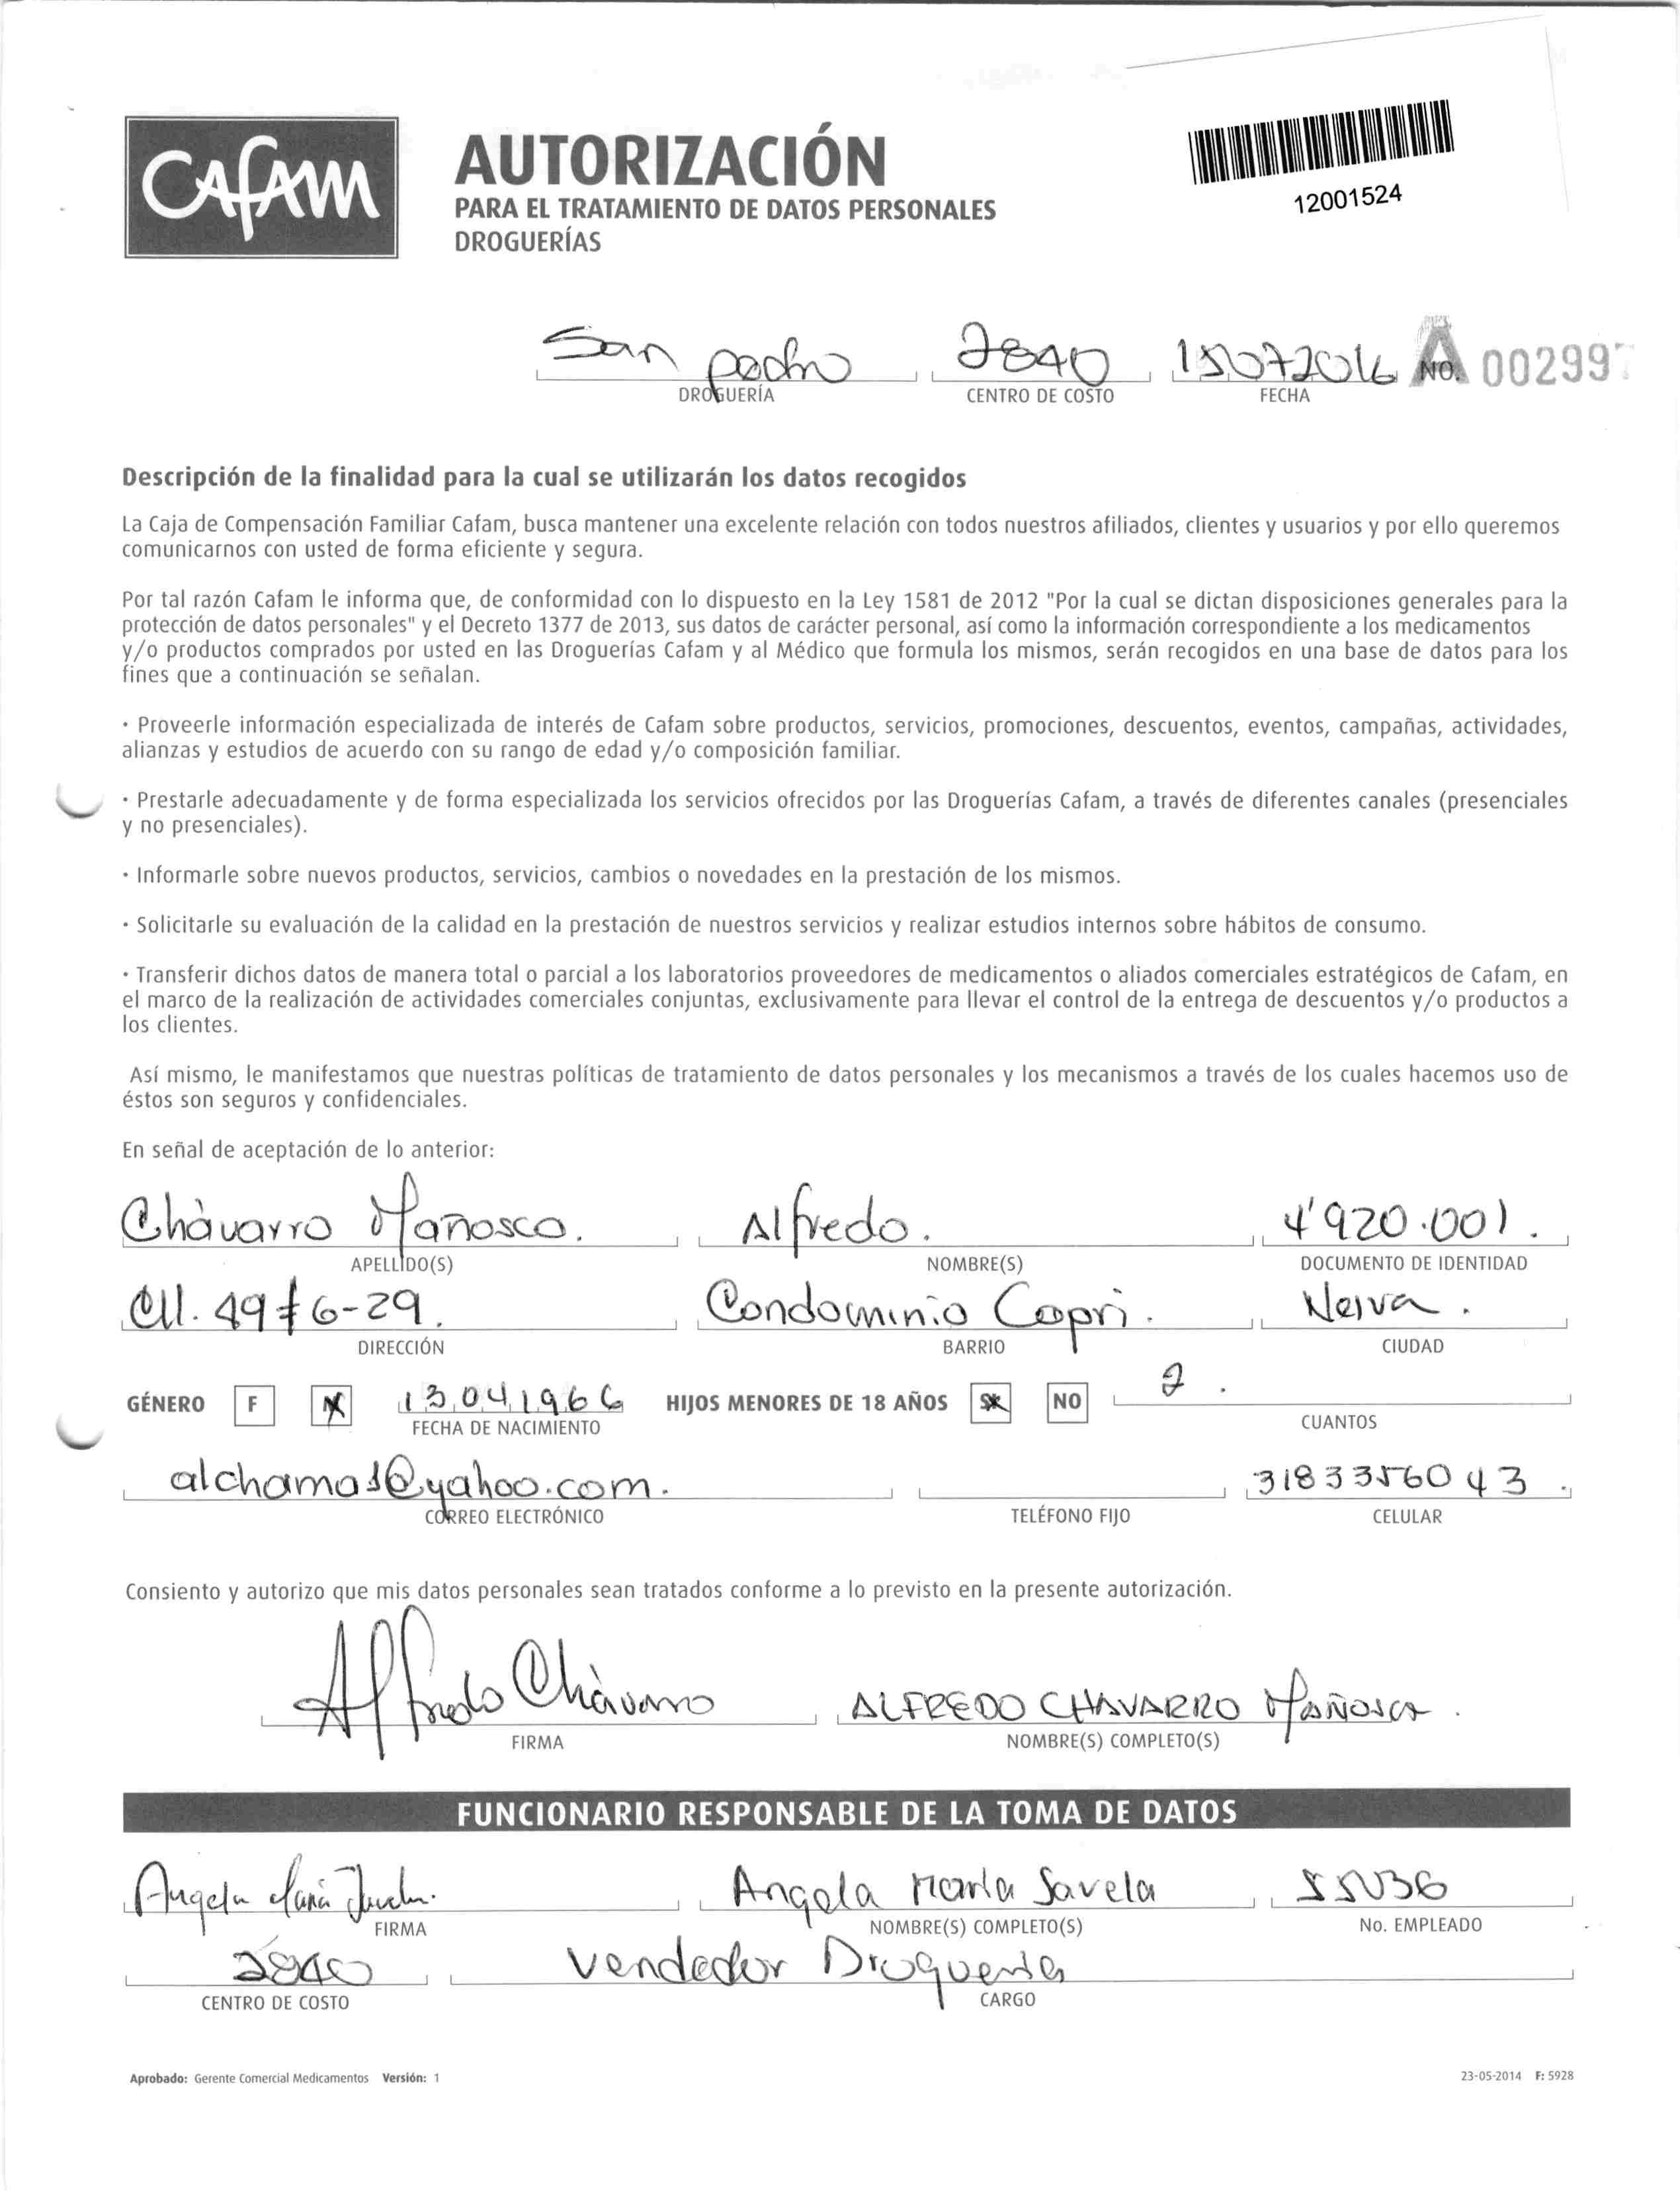 CAFAM
AUTORIZACIÓN
PARA EL TRATAMIENTO DE DATOS PERSONALES
DROGUERÍAS
12001524
San pedro 2840 15072016 A No. 002997
DROGUERÍA CENTRO DE COSTO FECHA
Descripción de la finalidad para la cual se utilizarán los datos recogidos
La Caja de Compensación Familiar Cafam, busca mantener una excelente relación con todos nuestros afiliados, clientes y usuarios y por ello queremos
comunicarnos con usted de forma eficiente y segura.
Por tal razón Cafam le informa que, de conformidad con lo dispuesto en la Ley 1581 de 2012 "Por la cual se dictan disposiciones generales para la
protección de datos personales" y el Decreto 1377 de 2013, sus datos de carácter personal, así como la información correspondiente a los medicamentos
y/o productos comprados por usted en las Droguerías Cafam y al Médico que formula los mismos, serán recogidos en una base de datos para los
fines que a continuación se señalan.
· Proveerle información especializada de interés de Cafam sobre productos, servicios, promociones, descuentos, eventos, campañas, actividades,
alianzas y estudios de acuerdo con su rango de edad y/o composición familiar.
· Prestarle adecuadamente y de forma especializada los servicios ofrecidos por las Droguerías Cafam, a través de diferentes canales (presenciales
y no presenciales).
· Informarle sobre nuevos productos, servicios, cambios o novedades en la prestación de los mismos.
· Solicitarle su evaluación de la calidad en la prestación de nuestros servicios y realizar estudios internos sobre hábitos de consumo.
· Transferir dichos datos de manera total o parcial a los laboratorios proveedores de medicamentos o aliados comerciales estratégicos de Cafam, en
el marco de la realización de actividades comerciales conjuntas, exclusivamente para llevar el control de la entrega de descuentos y/o productos a
los clientes.
Así mismo, le manifestamos que nuestras políticas de tratamiento de datos personales y los mecanismos a través de los cuales hacemos uso de
éstos son seguros y confidenciales.
En señal de aceptación de lo anterior:
Chàvarro Mañosca. Alfredo. 4'920.001.
APELLIDO(S) NOMBRE(S) DOCUMENTO DE IDENTIDAD
Cll. 49 # 6-29. Condominio Capri. Neiva.
DIRECCIÓN BARRIO CIUDAD
GÉNERO F M 13041966 HIJOS MENORES DE 18 AÑOS SI NO 2.
FECHA DE NACIMIENTO CUANTOS
alchama1@yahoo.com. 3183356043.
CORREO ELECTRÓNICO TELÉFONO FIJO CELULAR
Consiento y autorizo que mis datos personales sean tratados conforme a lo previsto en la presente autorización.
Alfredo Chàvarro ALFREDO CHAVARRO MAÑOSCA.
FIRMA NOMBRE(S) COMPLETO(S)
FUNCIONARIO RESPONSABLE DE LA TOMA DE DATOS
Angela María Angela María Savela
FIRMA NOMBRE(S) COMPLETO(S) No. EMPLEADO
2840 vendedor Drogueria
CENTRO DE COSTO CARGO
Aprobado: Gerente Comercial Medicamentos Versión: 1 23-05-2014 F: 5928